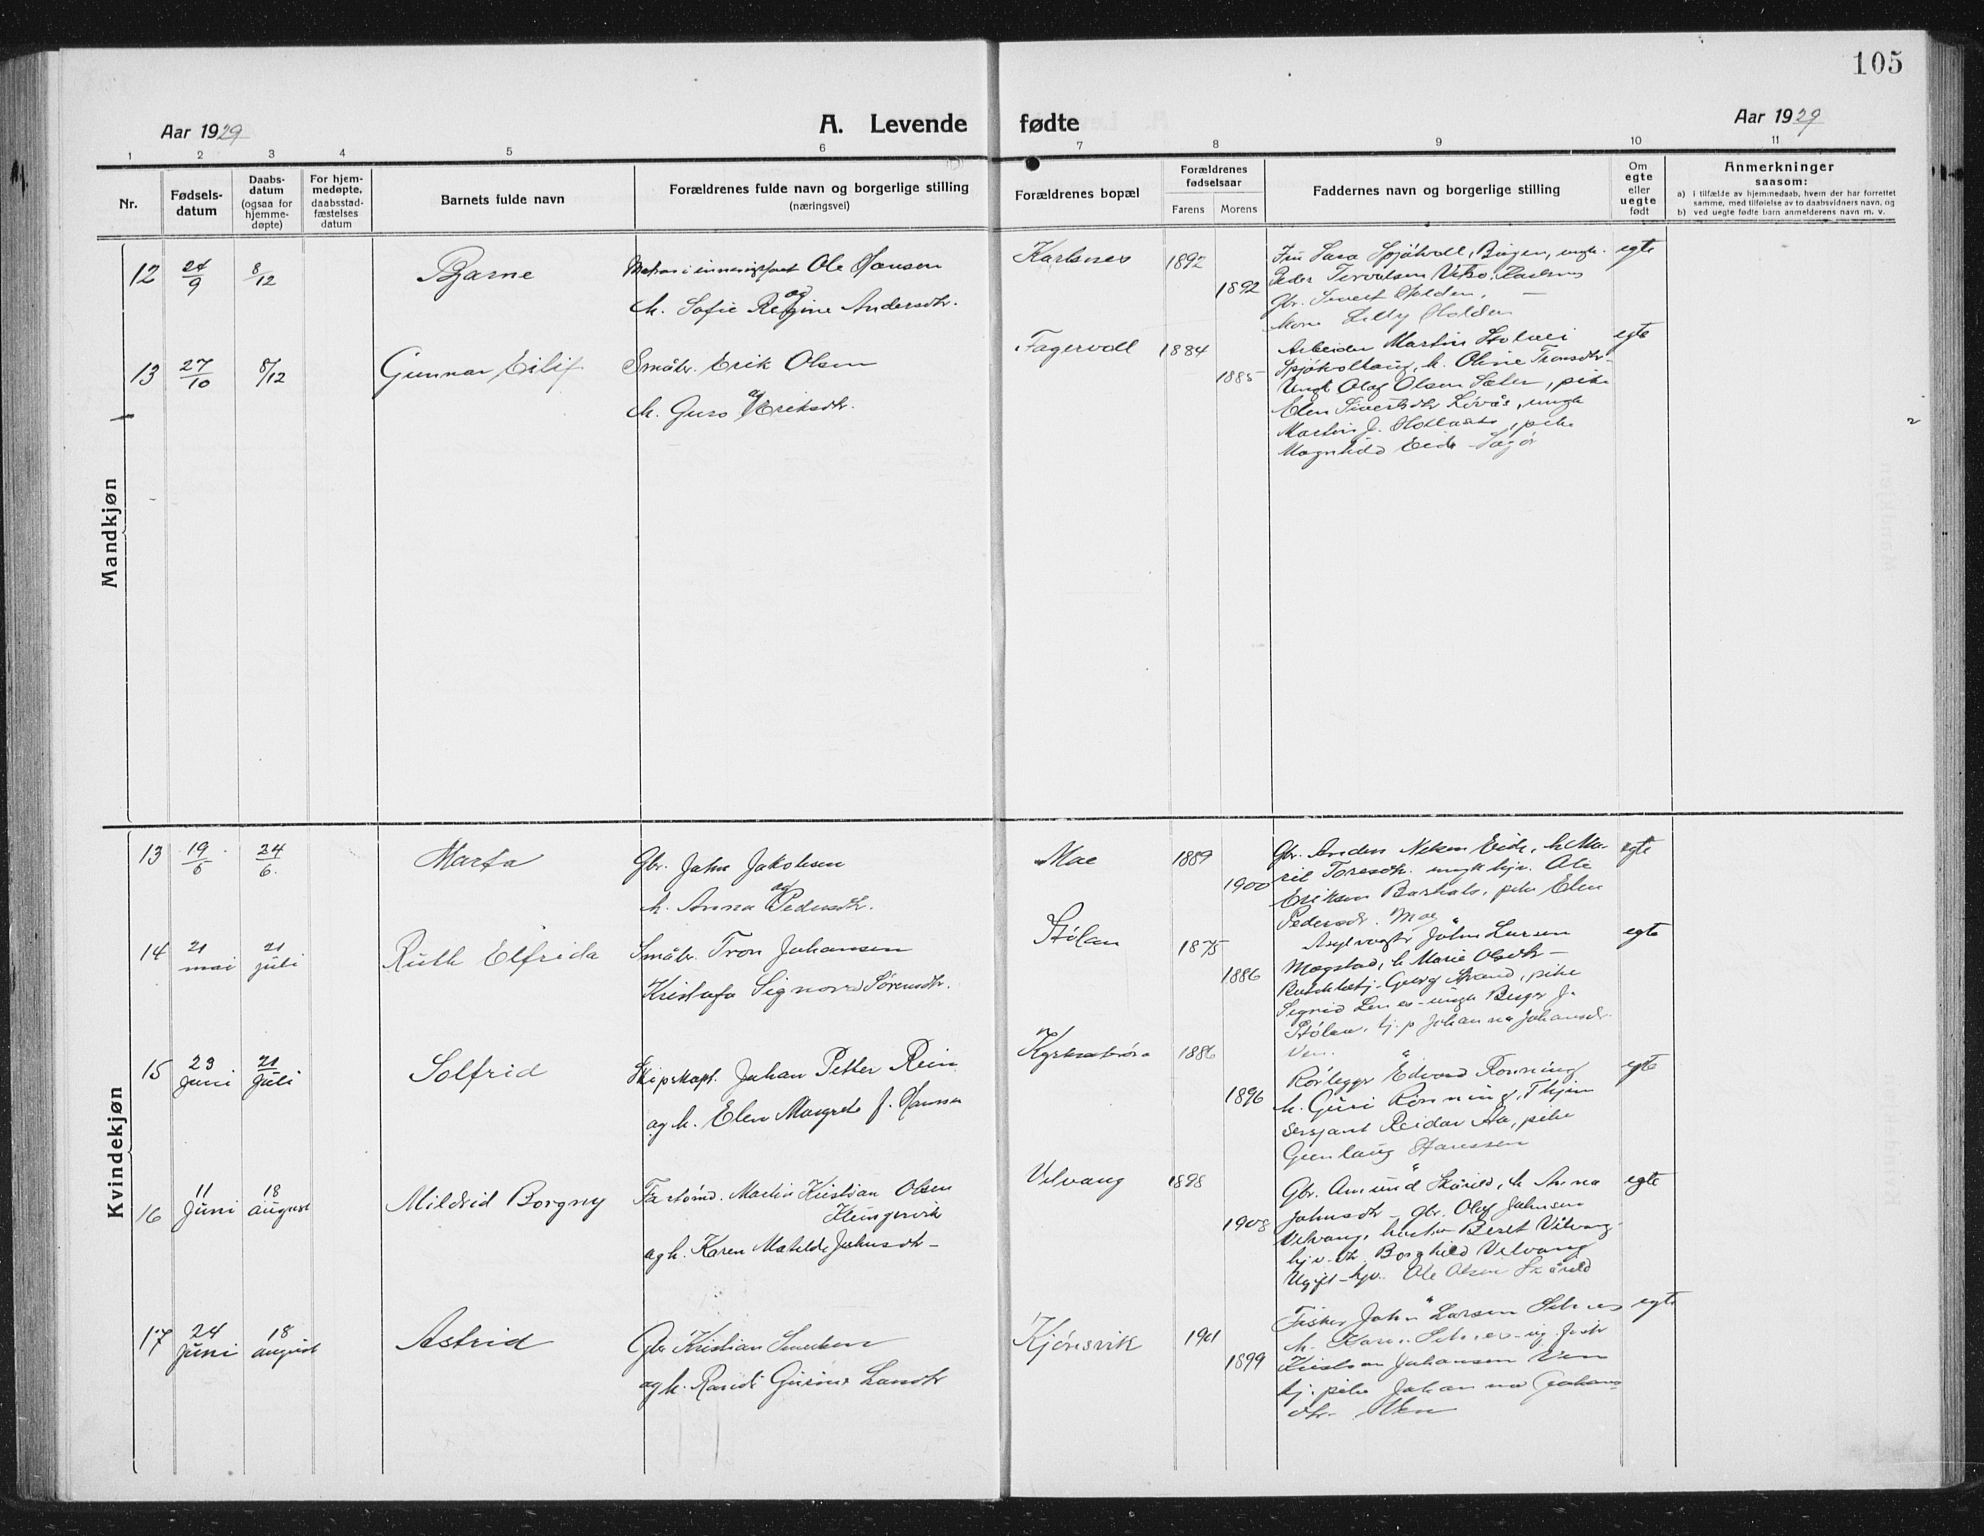 105
Aar 1929
A. Levende fødte
Aar 1929
1 2 3 4 5 6 7 8 9 10 11
Nr.
Fødsels-
datum
Daabs-
datum
(ogsaa for
hjemme-
døpte)
For hjem-
medøpte,
daabsstad-
fæstelses
datum
Barnets fulde navn
Forældrenes fulde navn og borgerlige stilling
(næringsvei)
Forældrenes bopæl
Forældrenes
fødselsaar
Farens Morens
Faddernes navn og borgerlige stilling
Om
egte
eller
uegte
født
Anmerkninger
saasom:
a) i tilfælde av hjemmedaab, hvem der har forrettet
samme, med tilføielse av to daabsvidners navn, og
b) ved uegte fødte barn anmelderens navn m. v.
Mandkjøn
12 24/9 8/12 Bjarne
Ole Hansen
og
h. Sofie Regine Andersdtr.
Karlsnes 1892
1892
Fru Sara
egte
Peder
Gbr. Sivert Holden,
Lilly Holden
13 27/10 8/12 Gunnar Eilif
Småbr. Erik Olsen
og
h. Guro Eriksdtr.
Fagervoll 1884
1885
Arbeider Martin
egte
h. Oline Tronsdtr
Ungk Olaf Olsen Sæter, pike
Elen Sivertsdtr Løvås, ungk
Martin J. pike
Magnhild Eide
Kvindekjøn
13 19/5 24/6. Marta
Gbr. John Jakobsen
og
h. Anna Pedersdtr.
Moe 1889
1900
Gbr. Anders Nilsen Eide, h. Ma-
egte
rit Toresdtr. ungk hjv. Ole
Eriksen pike Elen
Pedersdr. Moe
14 21 mai 21 juli Ruth Elfrida
Småbr. Tron Johansen
Kristofa Signora Sørensdtr.
Stølan 1875
1886
John Larsen
egte
Magstad, h. Marie Olsdtr
Georg Strand, pike
Sigrid ungk Birger J.
Stølan, hj. p Johanna Johansdr
Ven.
15 23 Juni 21 Juli Solfrid
Skipskapt. Johan Petter Rein
og h. Elen Margrete f. Hansen
Kyrksæterøra 1886
1896
Rørlegger Edvard Rønning
egte
h. Guri Rønning, Thjem
Sersjant Reidar Aa, pike
Gunlaug Hanssen
16 11 Juni 18 august Mildrid Borgny
Martin Kristian Olsen
Klungervik
og h. Karen Matilde Johnsdtr
Vilvang 1898
1908
Gbr. Amund Skårild, h Anna
egte
Johnsdtr gbr. Olaf Johnsen
Vilvang, hustru Beret Vilvang
hjv. dtr. Borghild Vilvang
Ugift hjv. Ole Olsen Skårild
17 24 Juni 18 august Astrid
Gbr Kristian Sivertsen
og h. Randi Gurine Larsdtr
Kjørsvik 1901
1899
Fisker John Larsen Selnes
egte
h. Karen Selnes
Kristian Johansen Ven
hj. pike Johanna Johans-
dtr. Ven